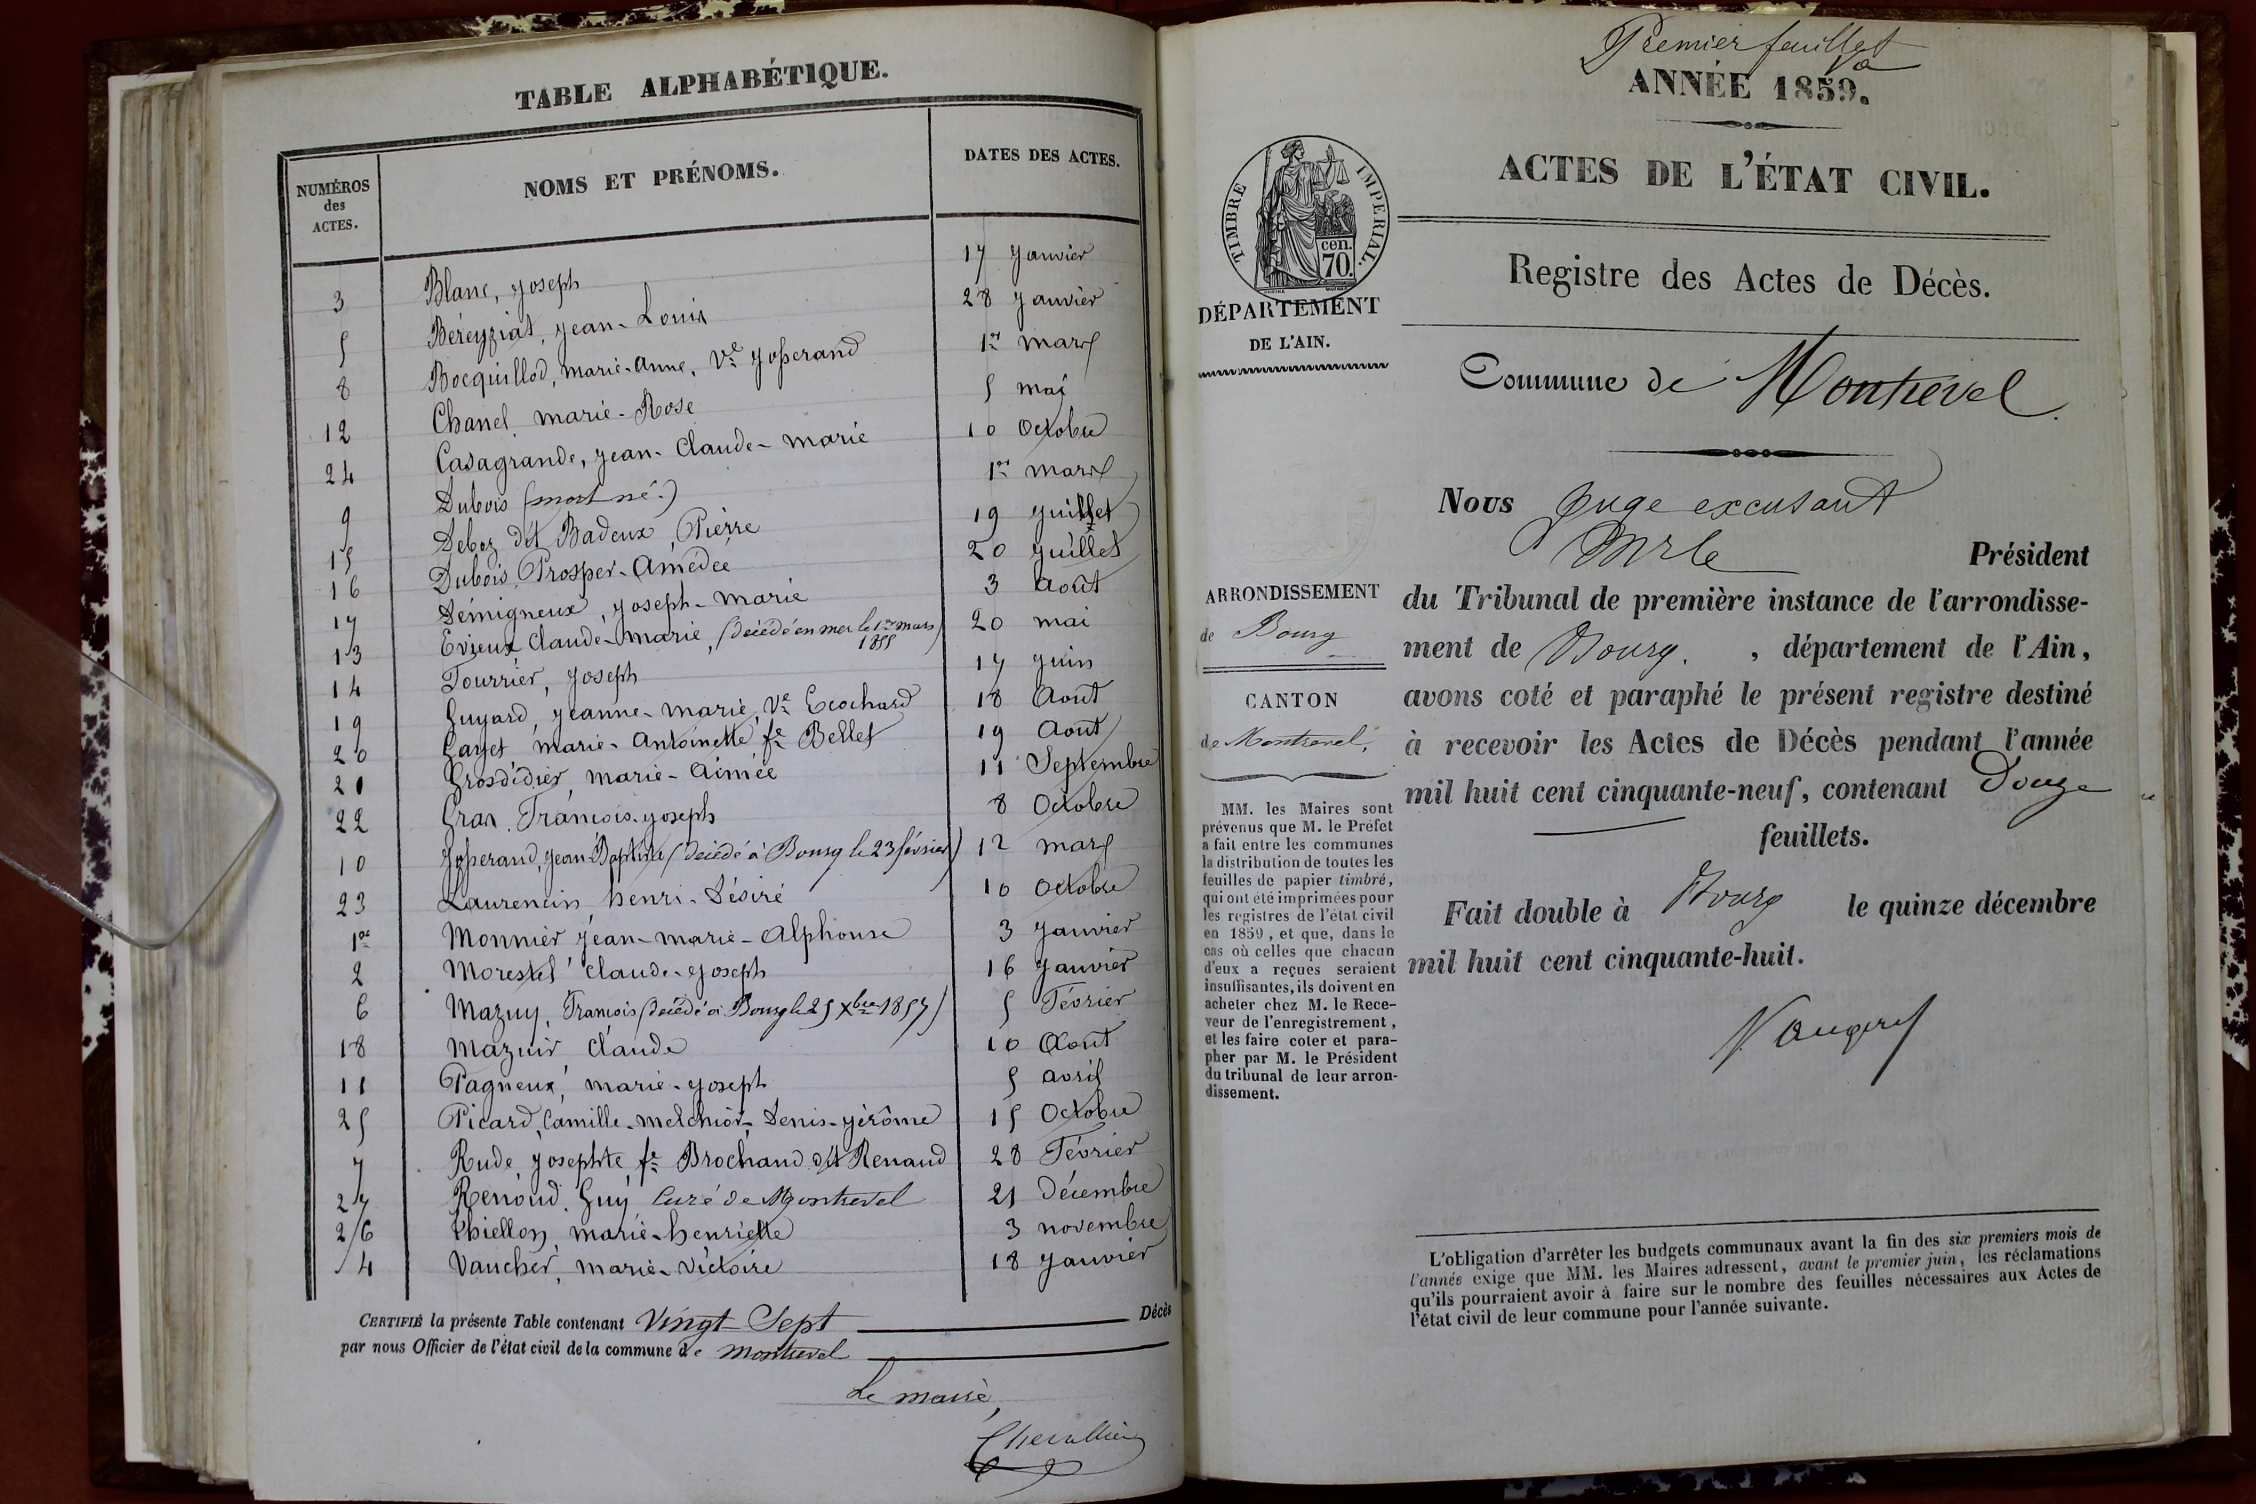 TABLE ALPHABÉTIQUE.
NUMÉROS des ACTES. NOMS ET PRÉNOMS. DATES DES ACTES.
3 Blanc, Joseph 17 Janvier
5 Béreyziat, Jean-Louis 28 Janvier
8 Bocquillod, Marie-Anne, Ve Josserand 1er mars
12 Chanel Marie-Rose 5 mai
24 Casagrande, Jean-Claude-Marie 10 Octobre
9 Dubois (mort né.) 1er mars
15 Deboz dit Badeux, Pierre 19 Juillet
16 Dubois Prosper-Amédée 20 Juillet
17 Démigneux, Joseph-Marie 3 Août
13 Evieux Claude-Marie, (décédé en mer le 1er mars 1855) 20 mai
14 Fourrier, Joseph 17 Juin
19 Guyard, Jeanne-Marie, Ve Ecochard 18 Août
20 Gayet Marie-Antoinette fe Bellet 19 Août
21 Grosdidier, Marie-Aimée 11 Septembre
22 Gras, François-Joseph 8 Octobre
10 Josserand, Jean-Baptiste (décédé à Bourg le 23 février) 12 mars
23 Laurencin henri-Désiré 10 Octobre
1er Monnier Jean-Marie-Alphonse 3 Janvier
2 Morestel Claude-Joseph 16 Janvier
6 Mazuy, François (décédé à Bourg le 25 Xbre 1857) 5 Février
18 Mazuir Claude 10 Août
11 Pagneux, Marie-Joseph 5 avril
25 Picard, Camille-Melchior-Denis-Jérôme 15 Octobre
7 Rude, Josephte fe Brochand dit Renaud 28 Février
27 Renoud, Guy, Curé de Montrevel 21 décembre
26 Thiellon, Marie-henriette 3 novembre
4 Vaucher, Marie-Victoire 18 Janvier
CERTIFIÉ la présente Table contenant Vingt-Sept Décès
par nous Officier de l'état civil de la commune de Montrevel
Le maire,
Chevallier
Premier feuillet
ANNÉE 1859.
ACTES DE L'ÉTAT CIVIL.
TIMBRE IMPÉRIAL.
cen.
70.
DÉPARTEMENT
DE L'AIN.
Registre des Actes de Décès.
Commune de Montrevel.
ARRONDISSEMENT
de Bourg
CANTON
de Montrevel.
MM. les Maires sont
prévenus que M. le Préfet
a fait entre les communes
la distribution de toutes les
feuilles de papier timbré,
qui ont été imprimées pour
les registres de l'état civil
en 1859, et que, dans le
cas où celles que chacun
d'eux a reçues seraient
insuffisantes, ils doivent en
acheter chez M. le Rece-
veur de l'enregistrement,
et les faire coter et para-
pher par M. le Président
du tribunal de leur arron-
dissement.
Nous Juge excusant
Mr le Président
du Tribunal de première instance de l'arrondisse-
ment de Bourg. , département de l'Ain,
avons coté et paraphé le présent registre destiné
à recevoir les Actes de Décès pendant l'année
mil huit cent cinquante-neuf, contenant Douze
feuillets.
Fait double à Bourg le quinze décembre
mil huit cent cinquante-huit.
L'obligation d'arrêter les budgets communaux avant la fin des six premiers mois de
l'année exige que MM. les Maires adressent, avant le premier juin, les réclamations
qu'ils pourraient avoir à faire sur le nombre des feuilles nécessaires aux Actes de
l'état civil de leur commune pour l'année suivante.